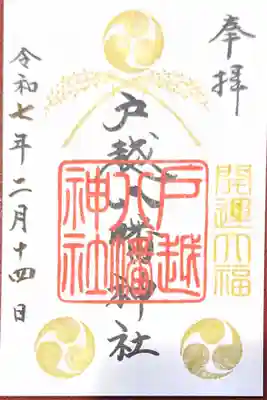 奉拝
開運六福
戸越八幡神社
戸越
八幡
神社
令和七年二月十四日